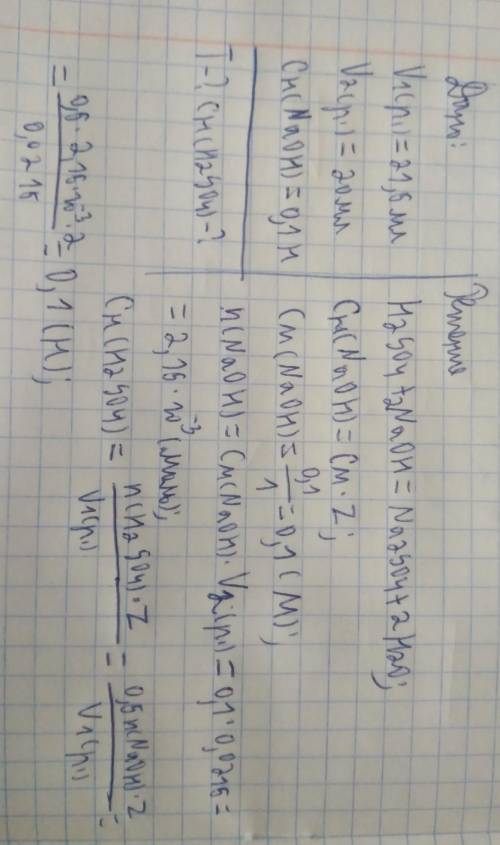 Дано:
V1(р.) = 21,6 мл
V2(р.) = 20 мл
Cн(NaOH) = 0,1 н
T-? Cн(H2SO4)-?
Решение
H2SO4 + 2NaOH = Na2SO4 + 2H2O;
Cн(NaOH) = Cм · Z;
Cм(NaOH) = 0,1/1 = 0,1 (M);
n(NaOH) = Cм(NaOH) · V2(р.) = 0,1 · 0,0216 =
= 2,16 · 10⁻³ (моль);
Cн(H2SO4) = n(H2SO4) · Z / V1(р.) = 0,5n(NaOH) · Z / V1(р.) =
= 0,5 · 2,16 · 10⁻³ · 2 / 0,0216 = 0,1 (H);